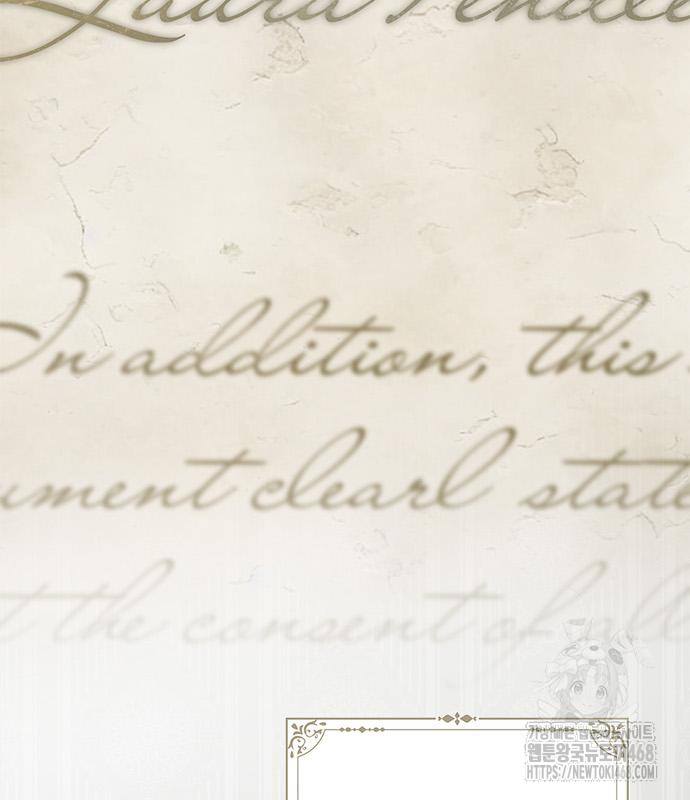 Laura Pendle
In addition, this
ument clearl state
t the consent of all
가장 빠른 웹툰 사이트
웹툰왕국뉴토끼468
HTTPS://NEWTOKI468.COM